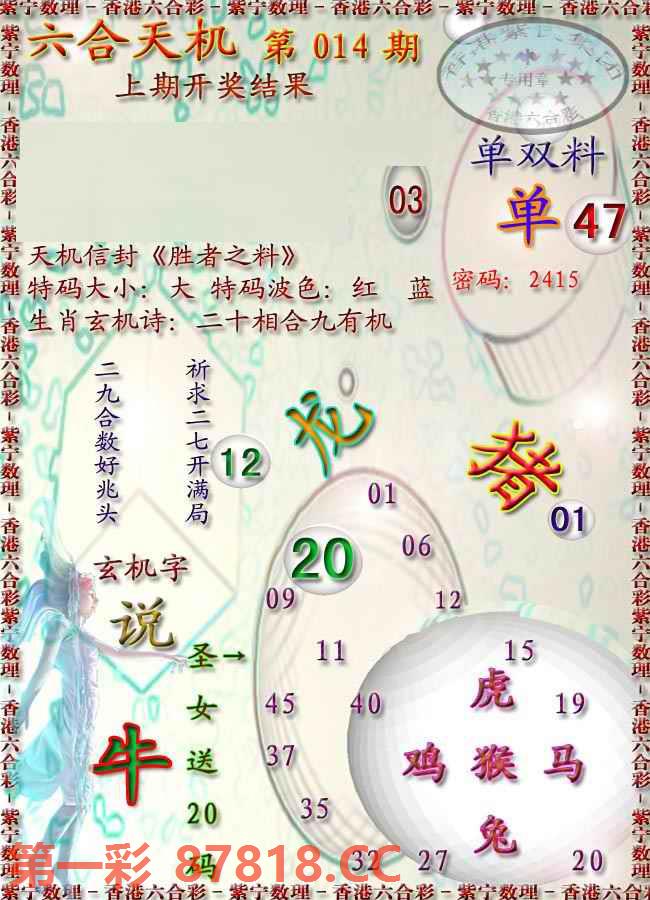 紫宁数理-香港六合彩-紫宁数理-香港六合彩-紫宁数理-香港六合彩
六合天机 第 014 期
上期开奖结果
香港紫宁集团
专用章
香港六合彩
单双料
单 47
03
天机信封《胜者之料》
特码大小: 大 特码波色: 红 蓝
密码: 2415
生肖玄机诗: 二十相合九有机
祈求二七开满局
二九合数好兆头
12
龙
猪
01
玄机字
说
牛
圣→
女
送
20
码
01
20
06
09
12
11
15
虎
45
40
19
37
鸡 猴 马
35
兔
32
27
20
第一彩 87818.CC
紫宁数理-香港六合彩-紫宁数理-香港六合彩-紫宁数理-香港六合彩